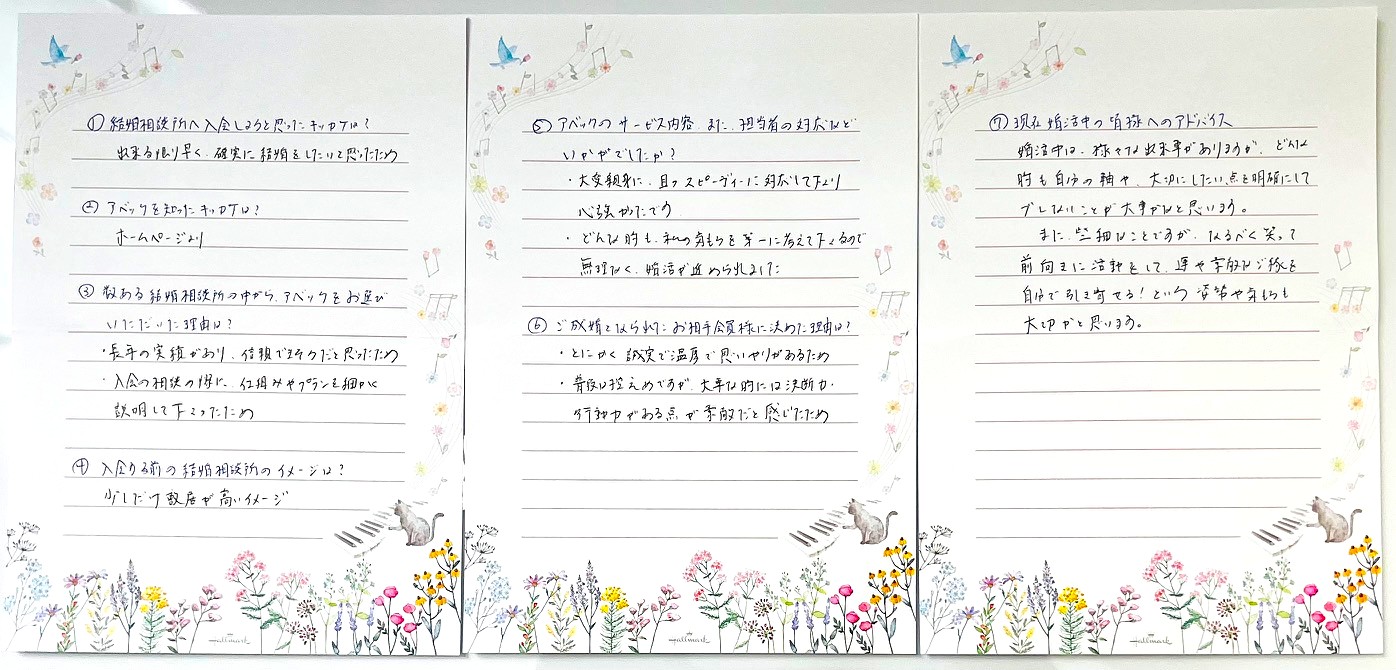 ① 結婚相談所へ入会しようと思ったキッカケは?
出来る限り早く、確実に結婚をしたいて思ったため
② アベックを知ったキッカケは?
ホームページより
③ 数ある結婚相談所の中から、アベックをお選び
いただいた理由は?
・長年の実績があり、信頼できそうだと思ったため
・入会の相談の際に、仕組みやプランを細かく
説明して下さったため
④ 入会する前の結婚相談所のイメージは?
少しだけ敷居が高いイメージ
Hallmark
⑤ アベックのサービス内容、また、担当者の対応など
いかがでしたか?
・大変親身に、且つスピーディーに対応して下さり
心強かったです
・どんな時も、私の気もちを第一に考えて下さるので
無理なく、婚活が進められました
⑥ ご成婚となられたお相手会員様に決めた理由は?
・とにかく誠実で温厚で思いやりがあるため
・普段は控えめですが、大事な時には決断力・
行動力がある点が素敵だと感じたため
Hallmark
⑦ 現在婚活中の皆様へのアドバイス
婚活中は、様々な出来事がありますが、どんな
時も自分の軸や、大切にしたい点を明確にして
ブレないことが大事かなと思います。
また、些細なことですが、なるべく笑って
前向きに活動をして、運や素敵なご縁を
自分で引き寄せる!という姿勢や気もちも
大切かと思います。
Hallmark